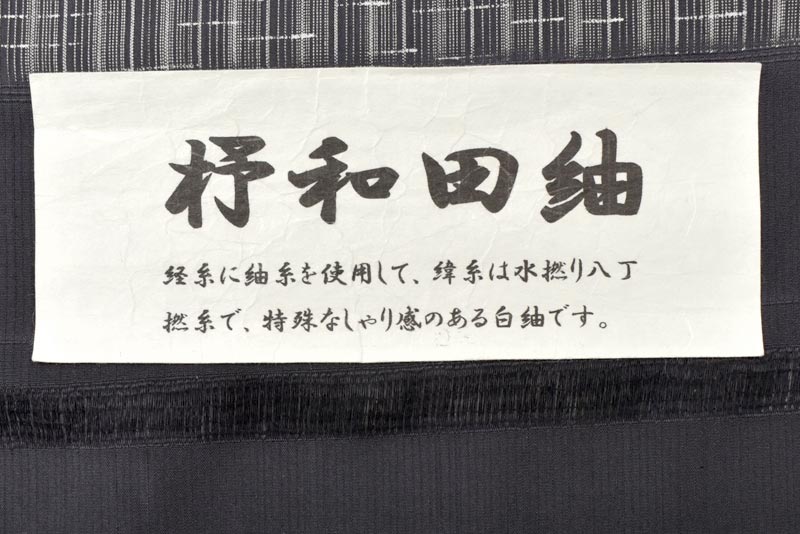 杼和田紬
経糸に紬糸を使用して、緯糸は水撚り八丁
撚糸で、特殊なしゃり感のある白紬です。